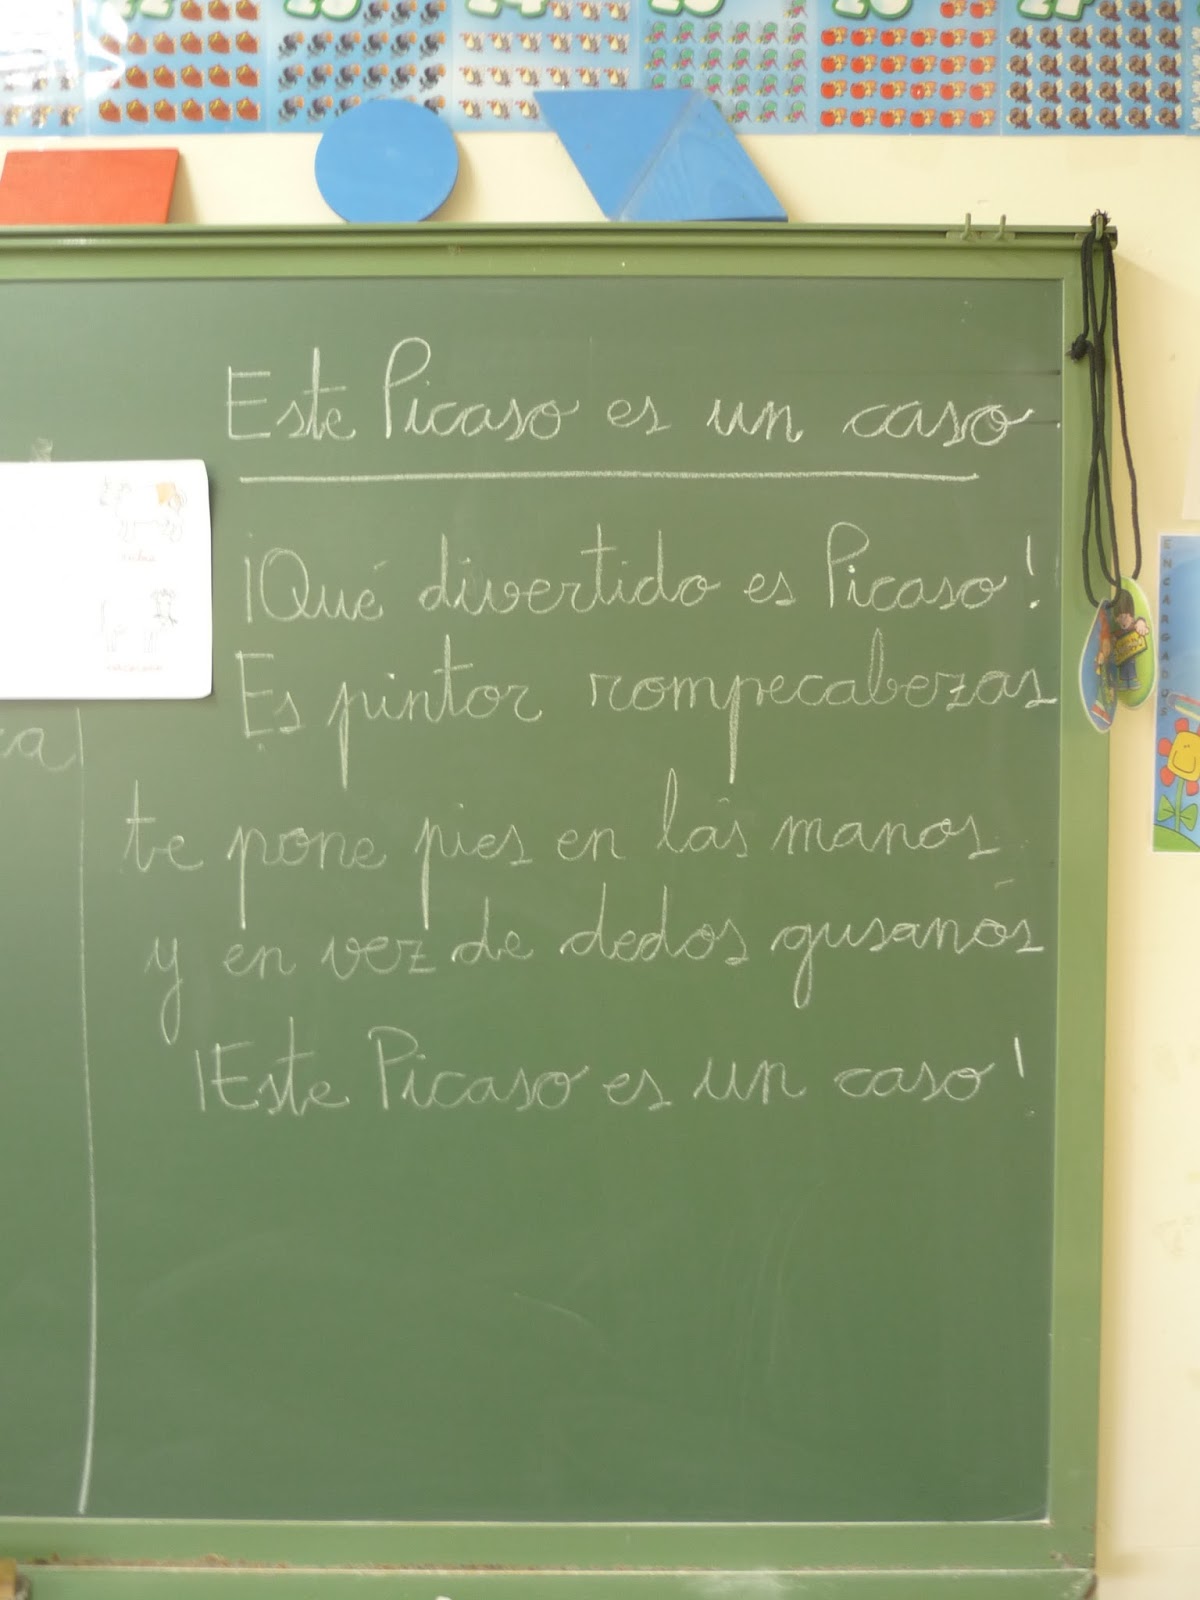 22 23 24 25 26 27
Este Picaso es un caso
¡Qué divertido es Picaso!
Es pintor rompecabezas
te pone pies en las manos
y en vez de dedos gusanos
¡Este Picaso es un caso!
ca
ENCARGADOS